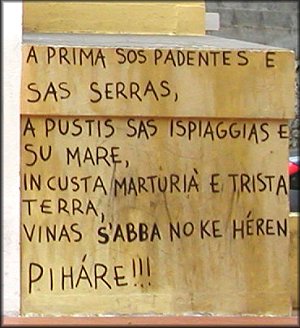 A PRIMA SOS PADENTES E
SAS SERRAS,
A PUSTIS SAS ISPIAGGIAS E
SU MARE,
IN CUSTA MARTURIÀ E TRISTA
TERRA,
VINAS S'ABBA NO KE HÉREN
PIHÁRE!!!